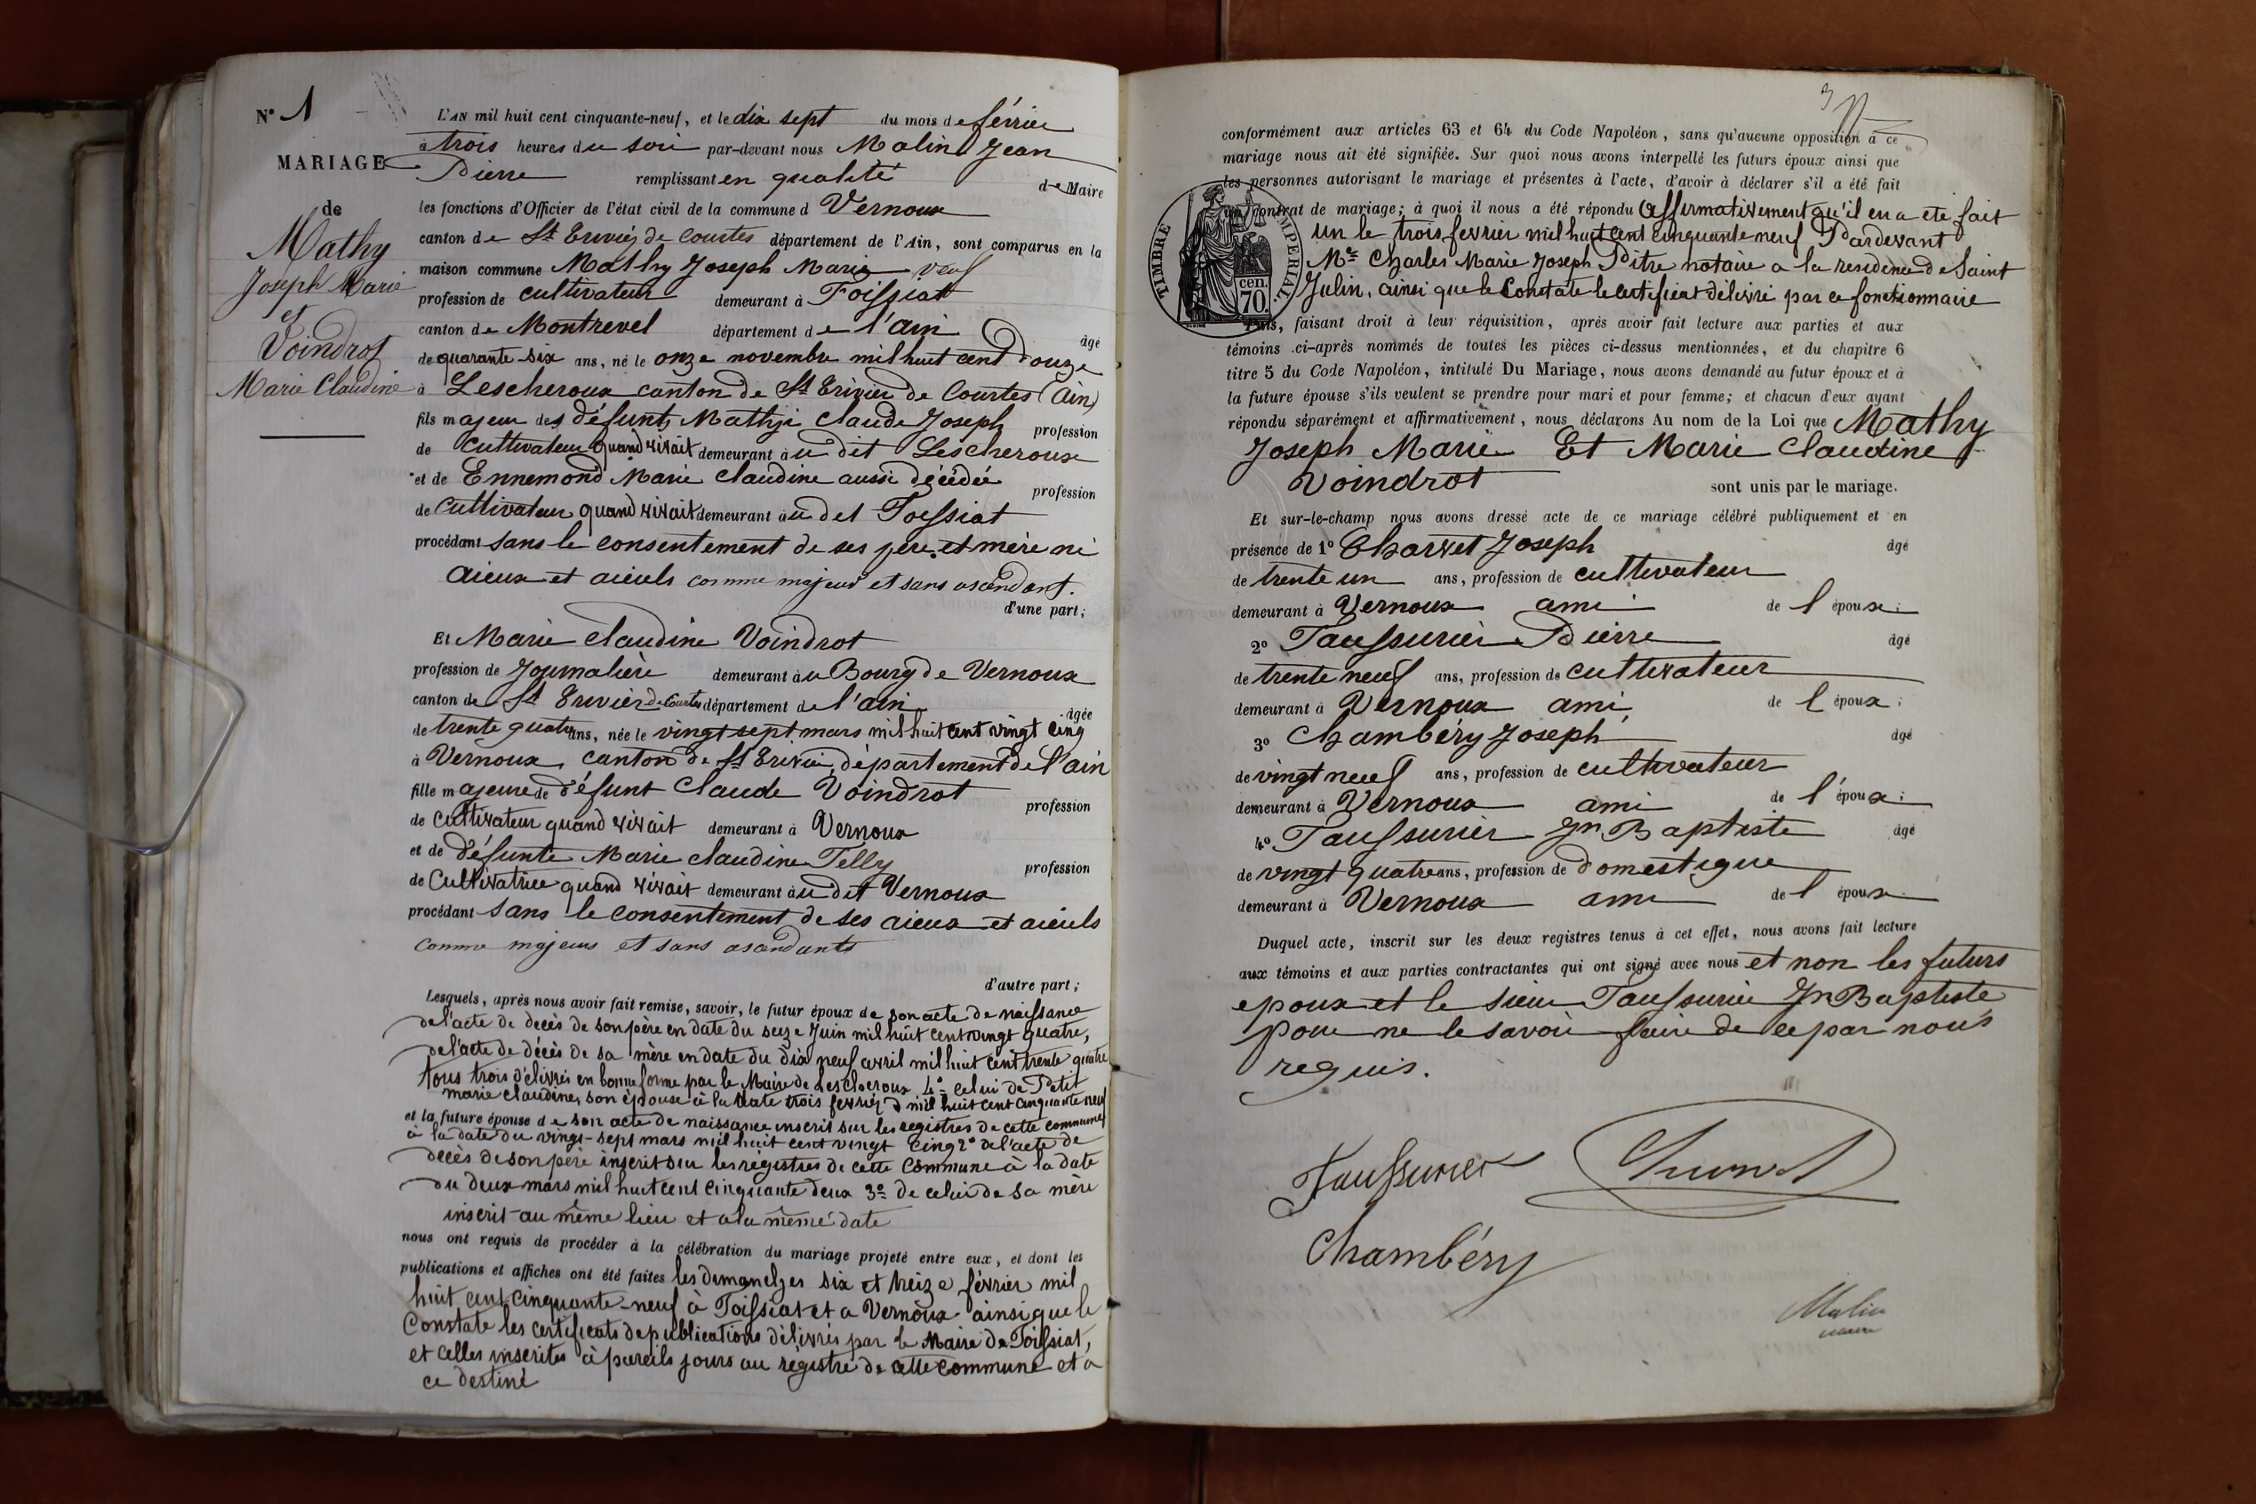 N° 1
MARIAGE
de
Mathy
Joseph Marie
et
Voindrot
Marie Claudine
L'AN mil huit cent cinquante-neuf, et le dix sept du mois de février
à trois heures du soir par-devant nous Malin Jean
Pierre remplissant en qualité de Maire
les fonctions d'Officier de l'état civil de la commune d Vernoux
canton de St Trivier de Courtes département de l'Ain, sont comparus en la
maison commune Mathy Joseph Marie veuf
profession de cultivateur demeurant à Foissiat
canton de Montrevel département de l'ain âgé
de quarante-six ans, né le onze novembre mil huit cent douze
à Lescheroux canton de St Trivier de Courtes (Ain)
fils majeur des défunts Mathy Claude Joseph profession
de cultivateur quand vivait demeurant au dit Lescheroux
et de Ennemond Marie Claudine aussi décédée profession
de cultivateur quand vivait demeurant au dit Foissiat
procédant sans le consentement de ses père et mère ni
aieux et aieuls comme majeur et sans ascendant.
d'une part;
Et Marie Claudine Voindrot
profession de Journalière demeurant au Bourg de Vernoux
canton de St Trivier de Courtes département de l'ain âgée
de trente quatre ans, née le vingt sept mars mil huit cent vingt cinq
à Vernoux canton de St Trivier, département de l'ain
fille majeure de défunt Claude Voindrot profession
de cultivateur quand vivait demeurant à Vernoux
et de défunte Marie Claudine Telly profession
de Cultivatrice quand vivait demeurant au dit Vernoux
procédant sans le consentement de ses aieux et aieuls
comme majeurs et sans ascendants
d'autre part;
Lesquels, après nous avoir fait remise, savoir, le futur époux de son acte de naissance
de l'acte de décès de son père en date du seize Juin mil huit cent vingt quatre,
de l'acte de décès de sa mère en date du dix neuf avril mil huit cent trente quatre
tous trois délivrés en bonne forme par le Maire de Lescheroux 4° celui de Petit
marie claudine, son épouse à la date trois fevrier mil huit cent cinquante neuf
et la future épouse de son acte de naissance inscrit sur les registres de cette commune
à la date du vingt-sept mars mil huit cent vingt cinq 2° de l'acte de
décès de son père inscrit sur les registres de cette Commune à la date
du deux mars mil huit cent cinquante deux 3° de celui de sa mère
inscrit au même lieu et à la même date
nous ont requis de procéder à la célébration du mariage projeté entre eux, et dont les
publications et affiches ont été faites les dimanches six et treize février mil
huit cent cinquante-neuf à Foissiat et a Vernoux ainsi que le
Constate les certificats de publications délivrés par le Maire de Foissiat,
et celles inscrites à pareils jours au registre de cette commune et a
ce destiné
3
conformément aux articles 63 et 64 du Code Napoléon, sans qu'aucune opposition à ce
mariage nous ait été signifiée. Sur quoi nous avons interpellé les futurs époux ainsi que
les personnes autorisant le mariage et présentes à l'acte, d'avoir à déclarer s'il a été fait
un contrat de mariage; à quoi il nous a été répondu affirmativement qu'il en a ete fait
TIMBRE IMPERIAL.
cen.
70.
un le trois fevrier mil huit cent cinquante neuf Pardevant
Me Charles Marie Joseph Pitre notaire a la residence de Saint
Julin, ainsi que le Constate le certificat délivré par ce fonctionnaire
Puis, faisant droit à leur réquisition, après avoir fait lecture aux parties et aux
témoins ci-après nommés de toutes les pièces ci-dessus mentionnées, et du chapitre 6
titre 5 du Code Napoléon, intitulé Du Mariage, nous avons demandé au futur époux et à
la future épouse s'ils veulent se prendre pour mari et pour femme; et chacun d'eux ayant
répondu séparément et affirmativement, nous déclarons Au nom de la Loi que Mathy
Joseph Marie Et Marie Claudine
Voindrot sont unis par le mariage.
Et sur-le-champ nous avons dressé acte de ce mariage célébré publiquement et en
présence de 1° Charvet Joseph âgé
de trente un ans, profession de cultivateur
demeurant à Vernoux ami de l'époux;
2° Taussurier Pierre âgé
de trente neuf ans, profession de cultivateur
demeurant à Vernoux ami de l époux;
3° Chambéry Joseph âgé
de vingt neuf ans, profession de cultivateur
demeurant à Vernoux ami de l'époux;
4° Taussurier Jn Baptiste âgé
de vingt quatre ans, profession de domestique
demeurant à Vernoux ami de l époux
Duquel acte, inscrit sur les deux registres tenus à cet effet, nous avons fait lecture
aux témoins et aux parties contractantes qui ont signé avec nous et non les futurs
epoux et le sieur Taussurier Jn Baptiste
pour ne le savoir faire de ce par nous
requis.
Taussurier
Chambéry
Malin
maire